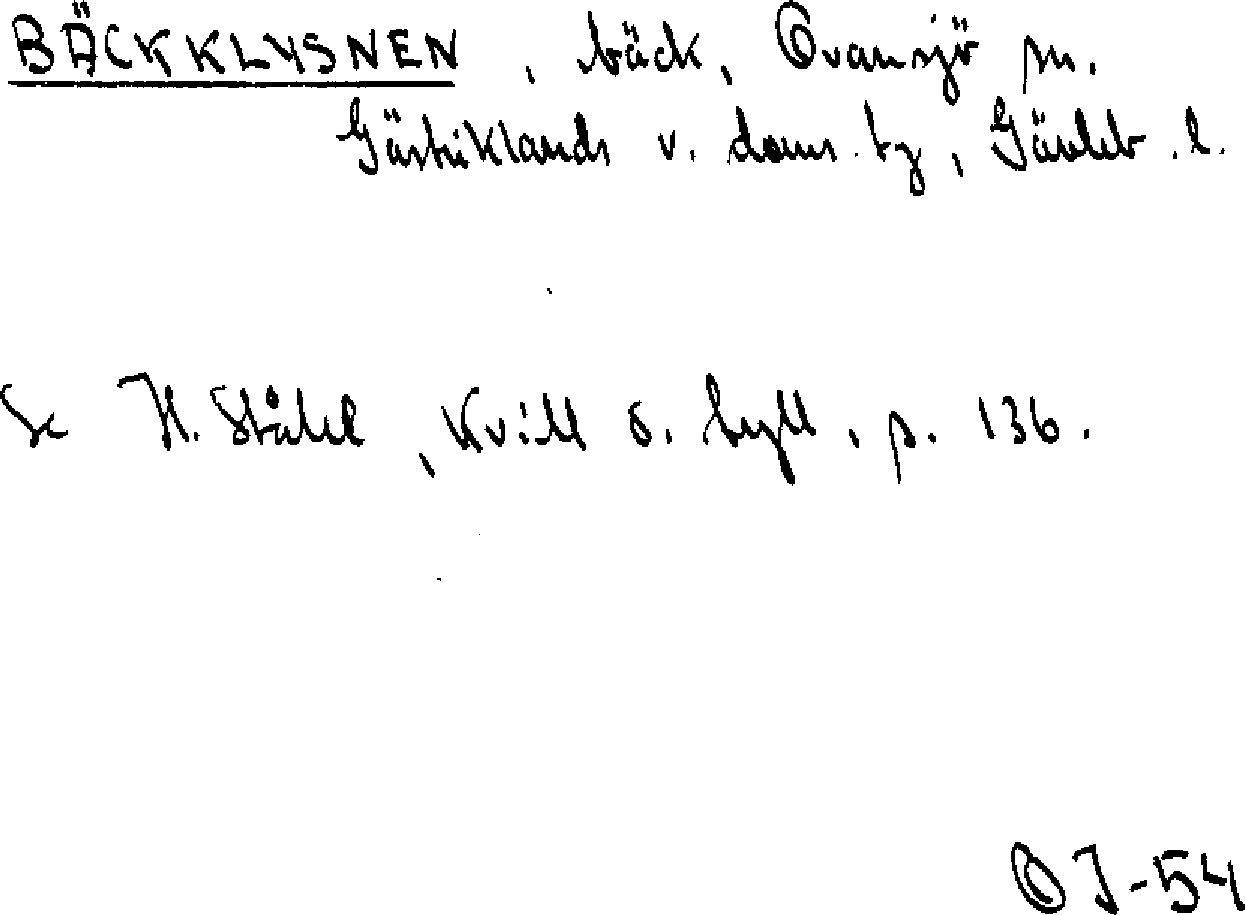 BÄCKKLYSNEN, bäck, Ovansjö sn.
Gästriklands v. doms. tg, Gävleb. l.
Se H. Ståhl, Kvill o. tyll, p. 136.
OJ-54